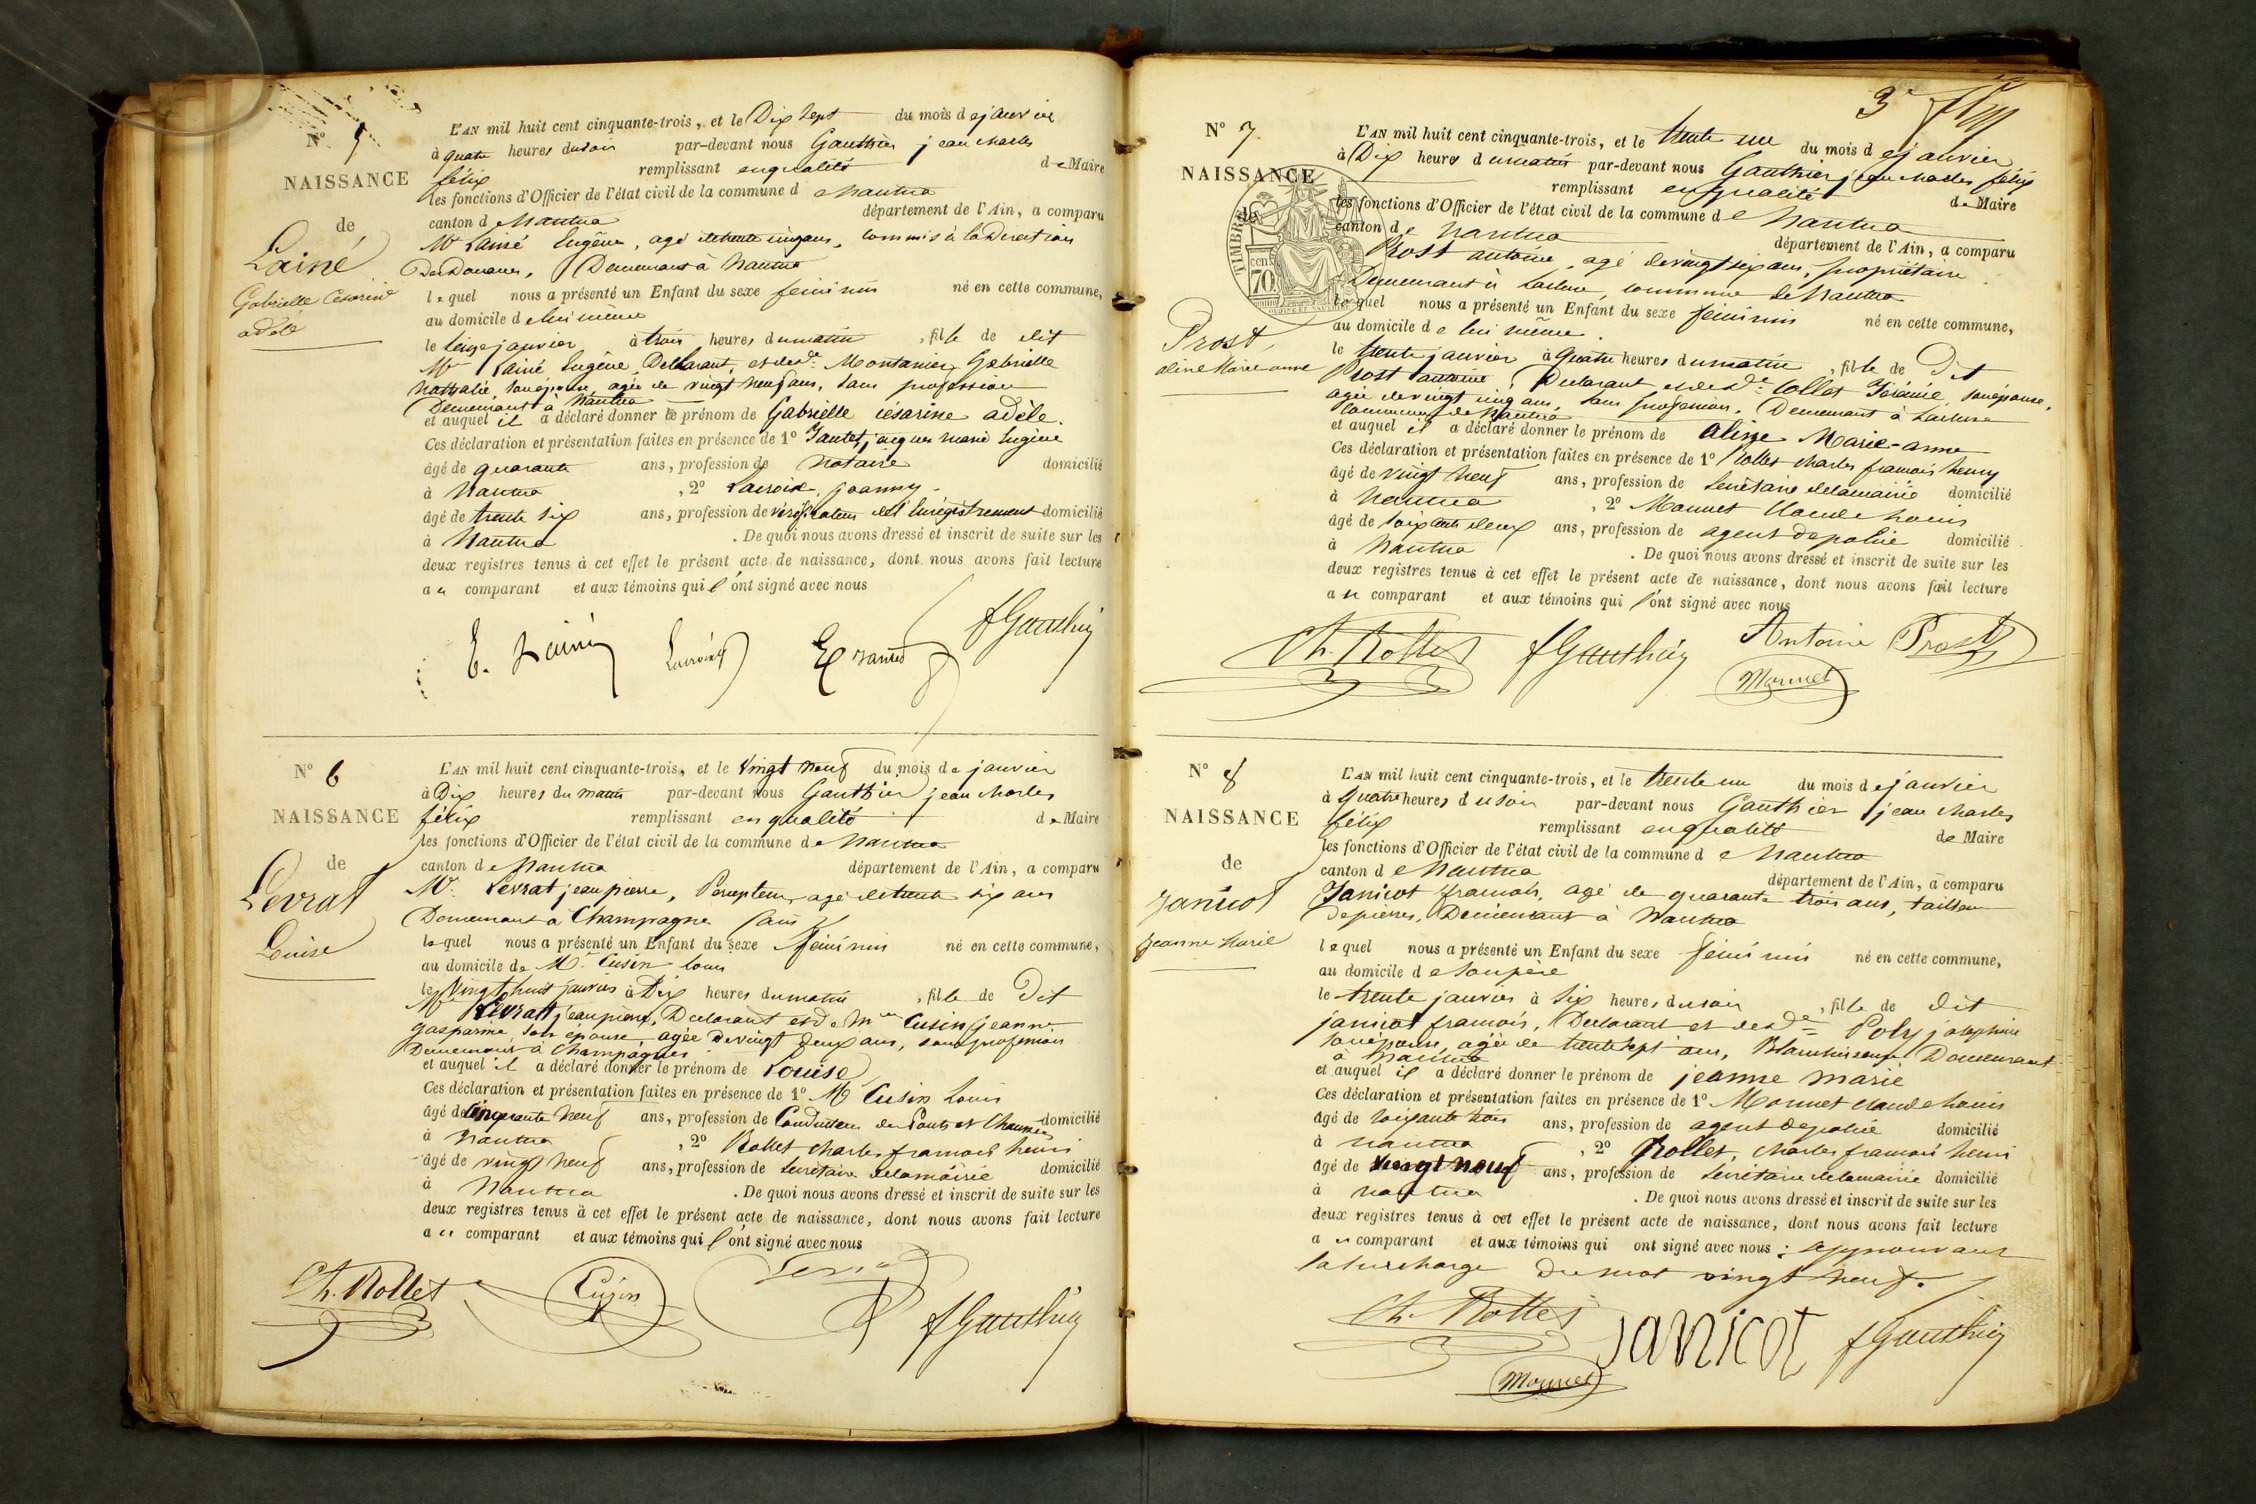 N° 5
NAISSANCE
de
Lainé
Gabrielle Césarine
adèle
L'AN mil huit cent cinquante-trois, et le Dix sept du mois de janvier
à quatre heures du soir par-devant nous Gauthier jean charles
félix remplissant en qualité de Maire
les fonctions d'Officier de l'état civil de la commune de Nantua
canton de Nantua département de l'Ain, a comparu
Mr Lainé Eugène, agé de trente cinq ans, commis à la Direction
Des Douanes, Demeurant à Nantua
lequel nous a présenté un Enfant du sexe feminin né en cette commune,
au domicile de lui même
le seize janvier à trois heures du matin, fille de dit
Mr Lainé Eugène, Déclarant, et de de Montanier Gabrielle
Nathalie, son épouse, agée de vingt neuf ans, sans profession
Demeurant à Nantua
et auquel il a déclaré donner le prénom de Gabrielle césarine adèle.
Ces déclaration et présentation faites en présence de 1° Jantet, jacques marie Eugène
âgé de quarante ans, profession de Notaire domicilié
à Nantua, 2° Lacroix, joanny
âgé de trente six ans, profession de vérificateur de l'Enregistrement domicilié
à Nantua. De quoi nous avons dressé et inscrit de suite sur les
deux registres tenus à cet effet le présent acte de naissance, dont nous avons fait lecture
au comparant et aux témoins qui l'ont signé avec nous
E. Lainé Lacroix E Jantet f Gauthier
N° 6
NAISSANCE
de
Levrat
Louise
L'AN mil huit cent cinquante-trois, et le vingt neuf du mois de janvier
à Dix heures du matin par-devant nous Gauthier jean charles
félix remplissant en qualité de Maire
les fonctions d'Officier de l'état civil de la commune de Nantua
canton de Nantua département de l'Ain, a comparu
Mr. Levrat jean pierre, Percepteur, agé de trente six ans
Demeurant à Champagne
lequel nous a présenté un Enfant du sexe féminin né en cette commune,
au domicile de Mr. Cusin Louis
le vingt huit janvier à Dix heures du matin, fille de Dit
Mr Levrat jean pierre, Declarant et de Cusin jeanne
gasparine, son épouse, agée de vingt deux ans, sans profession
Demeurant à Champagne
et auquel il a déclaré donner le prénom de Louise
Ces déclaration et présentation faites en présence de 1° Mr Cusin Louis
âgé de cinquante neuf ans, profession de Conducteur des Ponts et Chaussées domicilié
à Nantua, 2° Rollet charles francois henri
âgé de vingt neuf ans, profession de Secrétaire de la mairie domicilié
à Nantua. De quoi nous avons dressé et inscrit de suite sur les
deux registres tenus à cet effet le présent acte de naissance, dont nous avons fait lecture
au comparant et aux témoins qui l'ont signé avec nous
Ch. Rollet Cusin Levrat f Gauthier
3e
N° 7
NAISSANCE
de
TIMBRE
70 cent
Prost
aline Marie anne
L'AN mil huit cent cinquante-trois, et le trente un du mois de janvier
à Dix heures du matin par-devant nous Gauthier jean charles félix
remplissant en qualité de Maire
les fonctions d'Officier de l'état civil de la commune de Nantua
canton de Nantua département de l'Ain, a comparu
Prost antoine, agé de vingt six ans, propriétaire
Demeurant à commune de Nantua
lequel nous a présenté un Enfant du sexe féminin né en cette commune,
au domicile de lui même
le trente janvier à Quatre heures du matin, fille de Dit
Prost antoine, Declarant et de de Collet son épouse,
agée de vingt cinq ans, sans profession, Demeurant à
Commune de Nantua
et auquel il a déclaré donner le prénom de aline Marie-anne
Ces déclaration et présentation faites en présence de 1° Rollet charles francois henry
âgé de vingt neuf ans, profession de Secrétaire de la mairie domicilié
à Nantua, 2° Mounet Claude Louis
âgé de soixante deux ans, profession de agent de police domicilié
à Nantua. De quoi nous avons dressé et inscrit de suite sur les
deux registres tenus à cet effet le présent acte de naissance, dont nous avons fait lecture
au comparant et aux témoins qui l'ont signé avec nous
Ch. Rollet f Gauthier Antoine Prost
Mounet
N° 8
NAISSANCE
de
Janicot
Jeanne Marie
L'AN mil huit cent cinquante-trois, et le trente un du mois de janvier
à quatre heures du soir par-devant nous Gauthier jean charles
félix remplissant en qualité de Maire
les fonctions d'Officier de l'état civil de la commune de Nantua
canton de Nantua département de l'Ain, a comparu
Janicot francois, agé de quarante trois ans, tailleur
de pierres, Demeurant à Nantua
lequel nous a présenté un Enfant du sexe féminin né en cette commune,
au domicile de son père
le trente janvier à six heures du soir, fille de dit
janicot francois, Declarant et de de Poly josephine
son épouse, agée de trente sept ans, Blanchisseuse Demeurant
à Nantua
et auquel il a déclaré donner le prénom de jeanne marie
Ces déclaration et présentation faites en présence de 1° Mounet claude Louis
âgé de soixante trois ans, profession de agent de police domicilié
à Nantua, 2° Rollet, charles francois henri
âgé de vingt neuf ans, profession de Secrétaire de la mairie domicilié
à Nantua. De quoi nous avons dressé et inscrit de suite sur les
deux registres tenus à cet effet le présent acte de naissance, dont nous avons fait lecture
au comparant et aux témoins qui ont signé avec nous : approuvant
la surcharge du mot vingt neuf.
Ch. Rollet janicot f Gauthier
Mounet